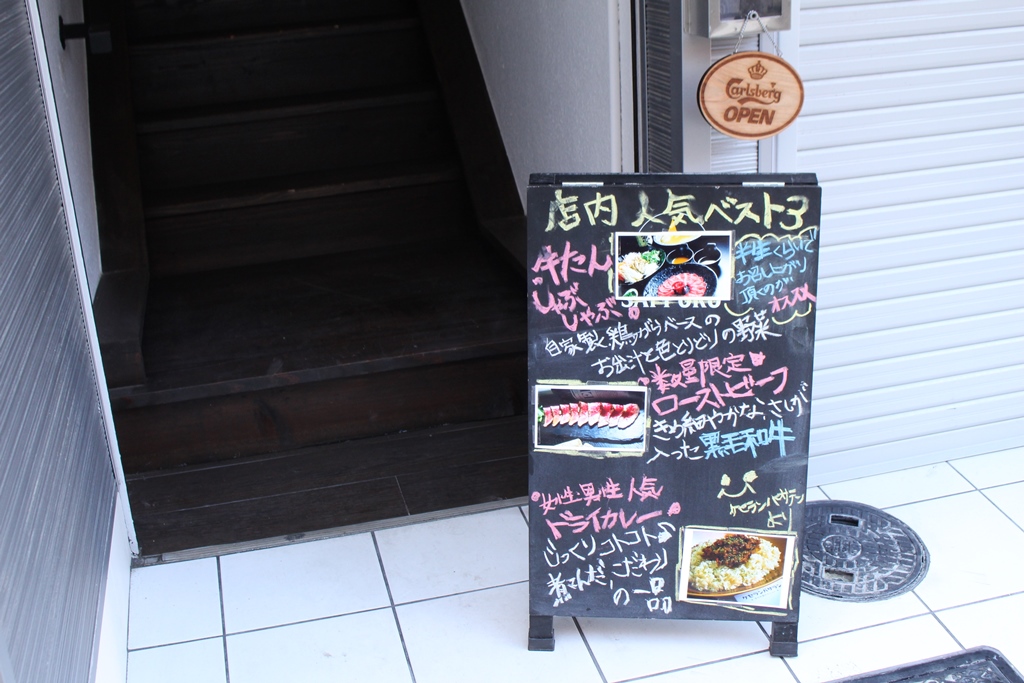 Carlsberg
OPEN
店内 人気ベスト3
牛たん
しゃぶ
しゃぶ
半生くらいで
お召し上がり
頂くのが
オススメ
SAPPORO
自家製、鶏がらベースの
お出汁と色とりどりの野菜
数量限定
ローストビーフ
きめ細やかな、さしが
入った黒毛和牛
女性・男性人気
ドライカレー
じっくりコトコト
煮こんだ こだわり
の一品
ケセランパサラン
より